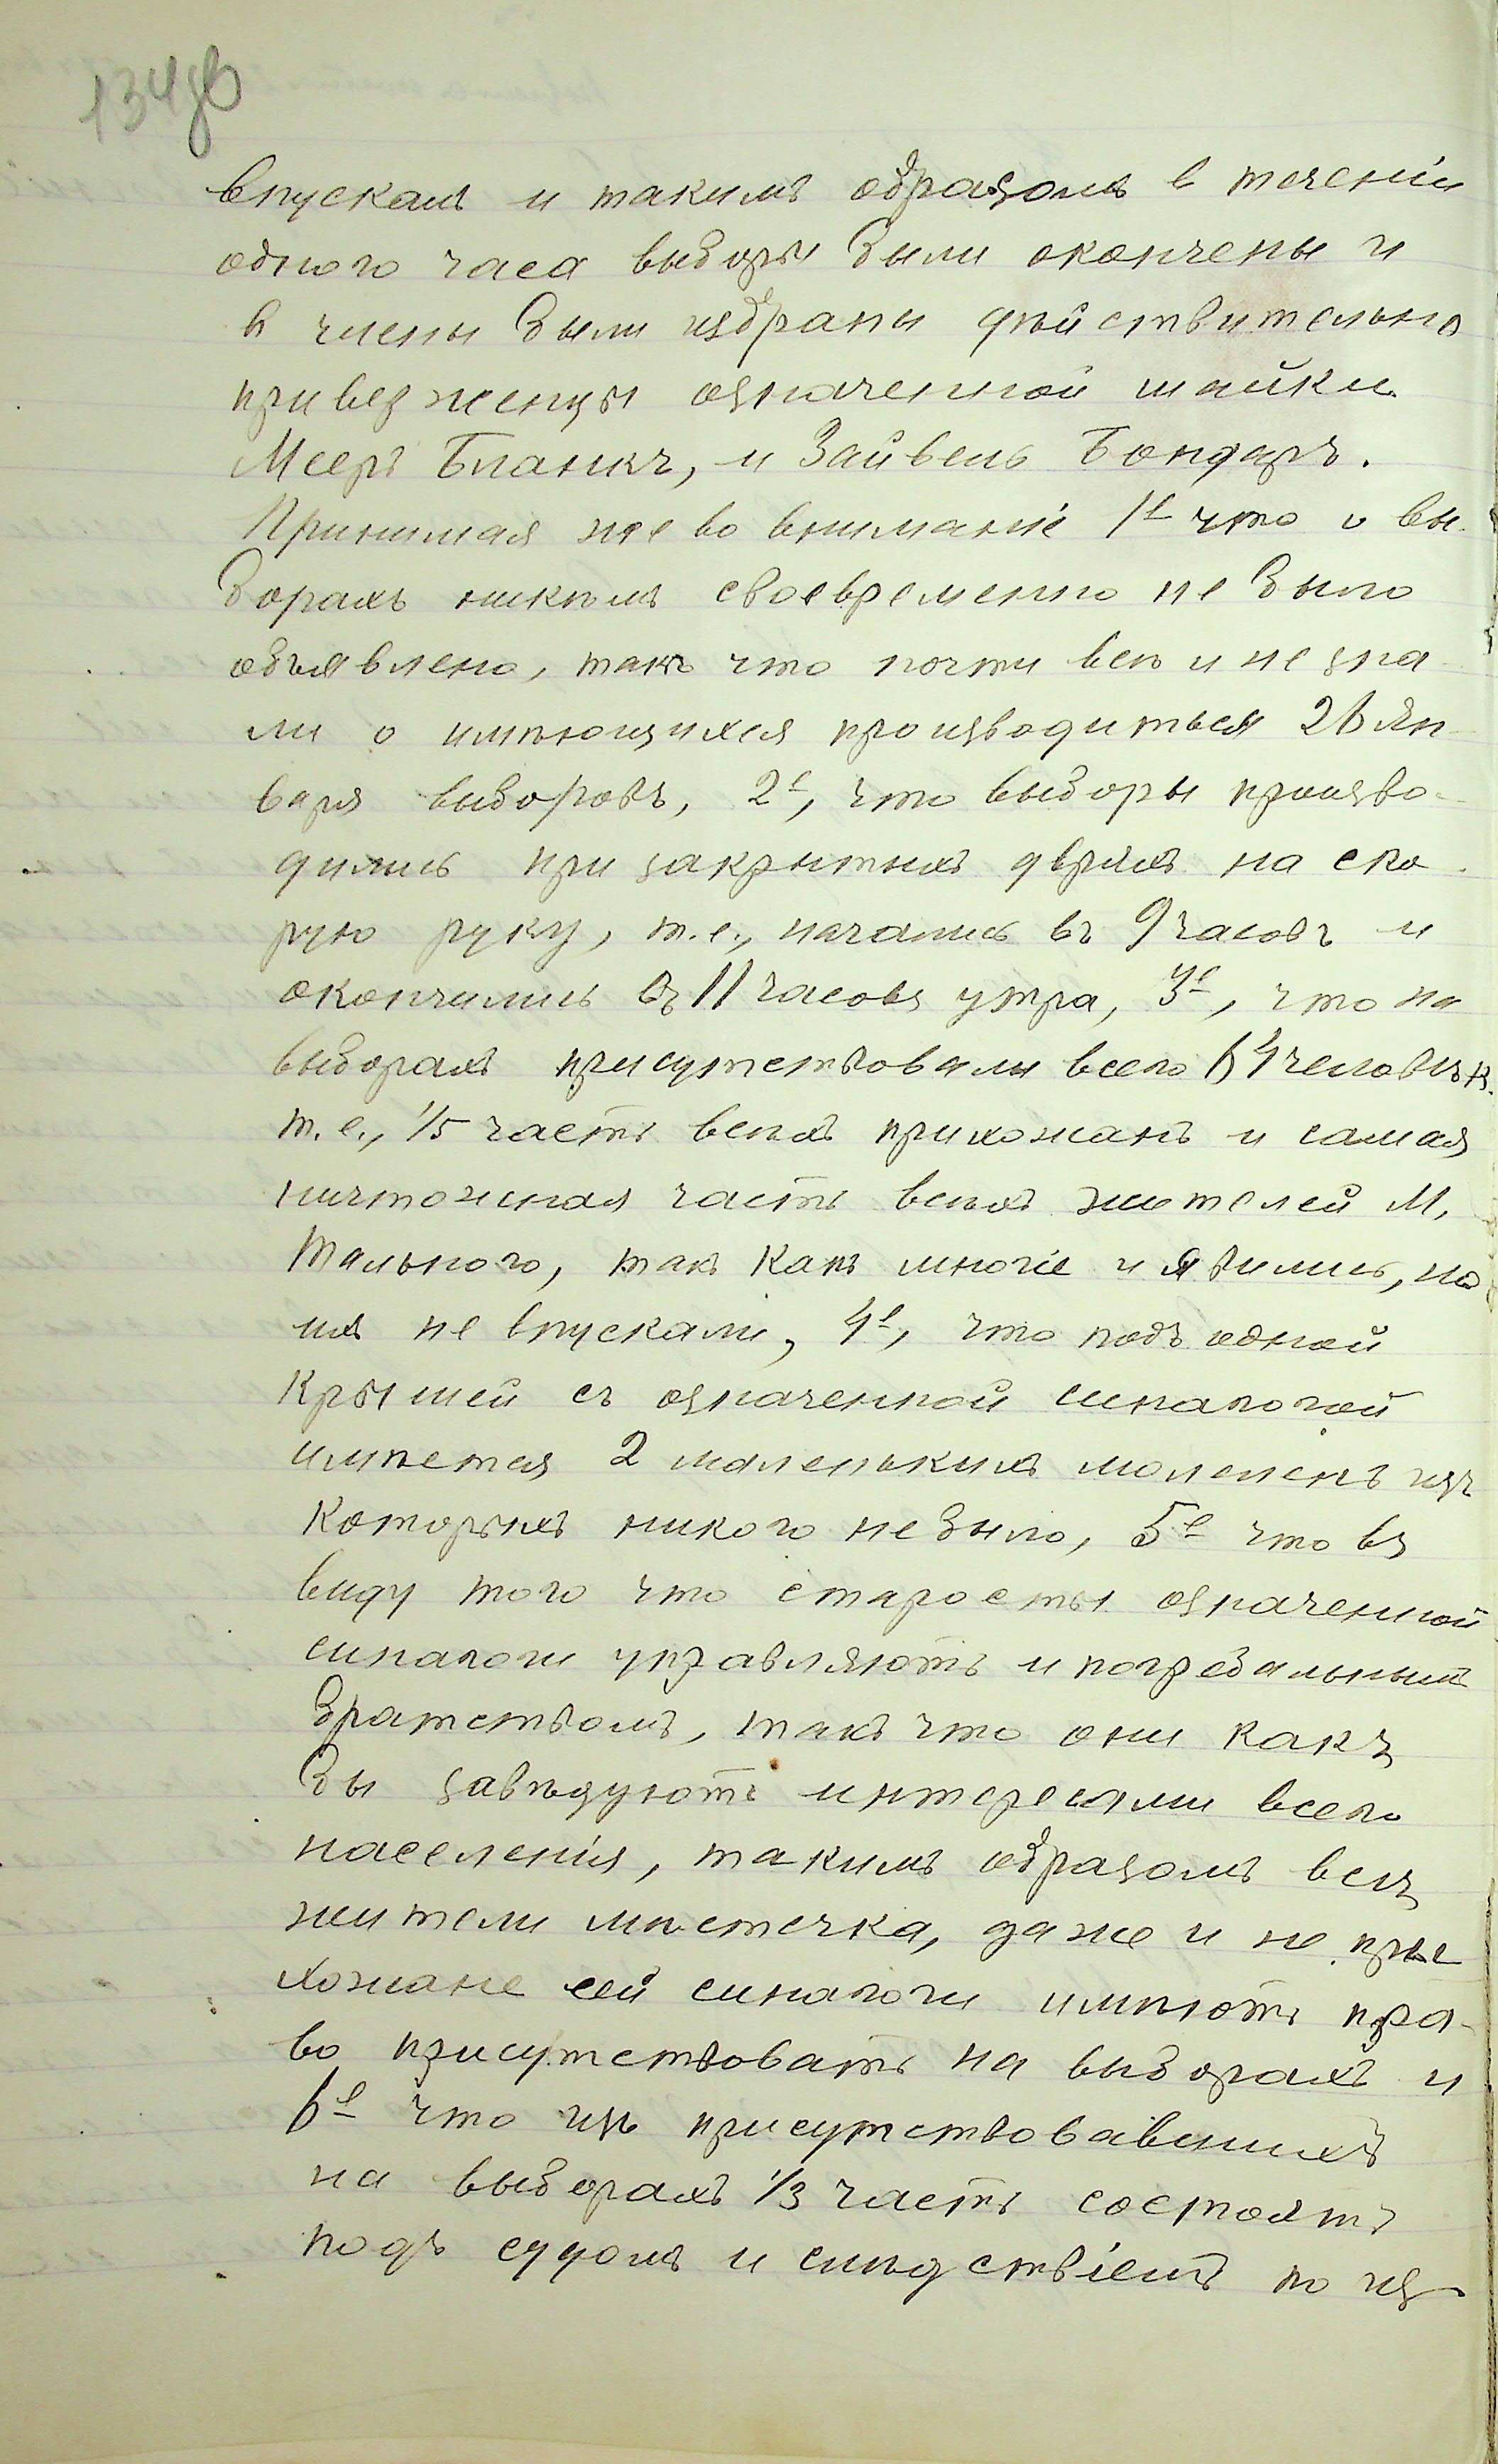 134об
впускалъ и такимъ образомъ в теченіи
одного часа выборы были окончены и
в члены были избраны дѣйствительно
приведженцы означенной шайки
Мееръ Бланкъ, и Зайвель Бондарь.
Принимая же во вниманіе 1е что о вы-
борахъ никѣмъ своевременно не было
объявлено, такъ что почти всѣ и не зна-
ли о имѣющихся производиться 26 Ян-
варя выборовъ, 2е, что выборы произво-
дились при закрытыхъ дврѣхъ на ско-
рую руку, т.е., начались въ 9 часовъ и
окончились въ 11 часовъ утра, 3е, что на
выборахъ присутствовали всего 64 человѣк.
т.е., 1/5 часть всѣхъ прихожанъ и самая
ничтожная часть всѣхъ жителей М.
Тального, такъ какъ многіе и явились, но
ихъ не впускали, 4е, что подъ одной
крышей съ означенной синагогой
имѣется 2 маленькихъ молеленъ изъ
которыхъ никого небыло, 5е что въ
виду того что старосты означенной
синагоги управляютъ и погребальнымъ
братствомъ, такъ что они какъ
бы завѣдуютъ интересами всего
населенія, такимъ образомъ всѣ
жители мѣстечка, даже и не при
хожане сей синагоги имѣютъ пра-
во присутствовать на выборахъ и
6е что изъ присутствовавшихъ
на выборахъ 1/3 часть состоятъ
подъ судомъ и слѣдствіемъ по из-